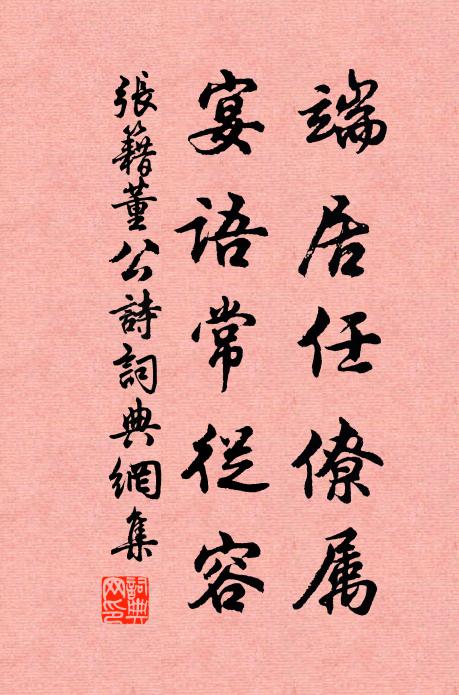 端居任僚属
宴语常從容
張籍董公詩詞典網集
詞典网印